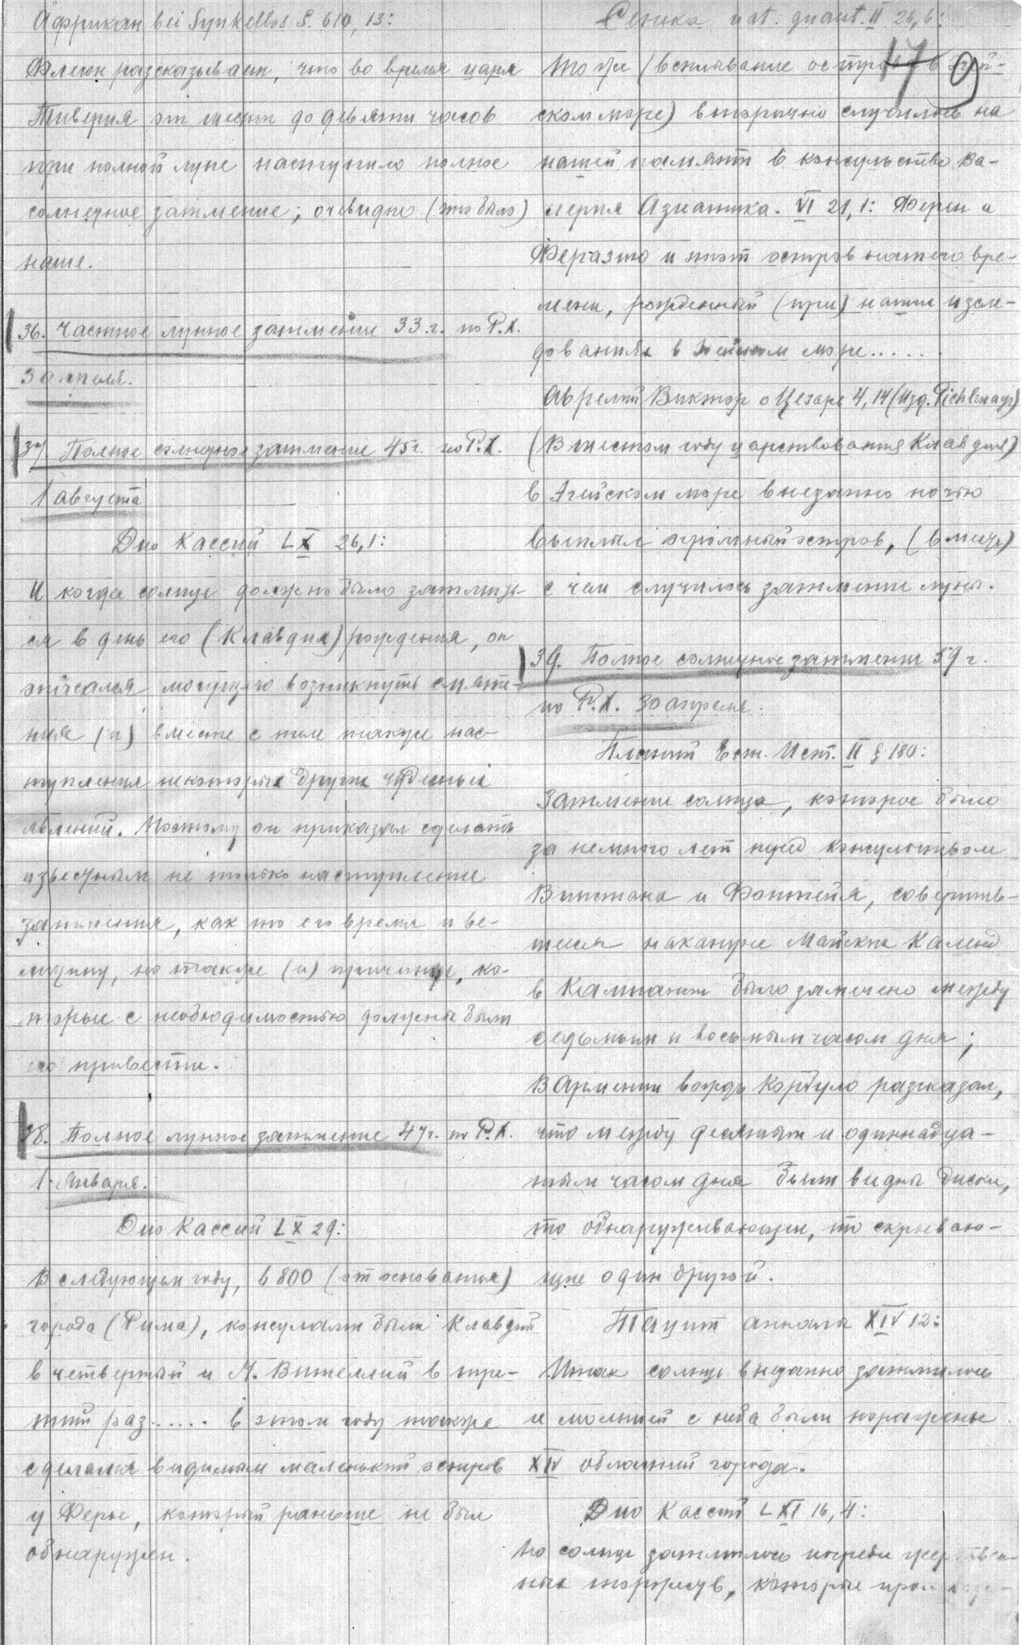 Африкан bei Synkellos S. 610, 13:
Флегон разсказывает, что во время царя
Тиверия от шести до девяти часов
при полной луне наступило полное
солнечное затмение; очевидно (это было)
наше.
36. Частное лунное затмение 33 г. по Р.Х.
3 апреля.
37. Полное солнечное затмение 45 г. по Р.Х.
1 августа
Дио Кассий LX 26,1:
И когда солнце должно было затмить-
ся в день его (Клавдия) рождения, он
опасался могущего возникнуть смяте-
ния (и) вместе с тем также нас-
тупления некоторых других чудесных
явлений. Поэтому он приказал сделать
известным не только наступление
затмения, как то его время и ве-
личину, но также (и) причины, ко-
торые с необходимостью должны были
его привести.
38. Полное лунное затмение 47 г. по Р.Х.
1 Января.
Дио Кассий LX 29:
В следующем году, в 800 (от основания)
города (Рима), консулами были Клавдий
в четвертый и Л. Вителлий в тре-
тий раз..... в этом году также
сделался видимым маленький остров
у Феры, который раньше не был
обнаружен.
Сенека nat. quaest. II 26,6:
17 9
То же (всплывание острова в Эгей-
ском море) вторично случилось на
нашей памяти в консульство Ва-
лерия Азиатика. VI 21,1: Феры и
Феразию и этот остров нашего вре-
мени, рожденный (при) наших
в море.....
Аврелий Виктор о Цезаре 4,14 (изд. Pichlmayr)
(В шестом году царствования Клавдия)
в Эгейском море внезапно ночью
всплыл огромный остров,
с чем случилось затмение луны.
39. Полное солнечное затмение 59 г.
по Р.Х. 30 апреля.
Плиний Ест. Ист. II § 180:
Затмение солнца, которое было
за немного лет пред консульством
Випстана и Фонтейя, совершив-
шееся накануне Майских Календ
в Кампании было замечено между
седьмым и восьмым часом дня;
В Армении вождь Корбуло рассказал,
что между десятым и одиннадца-
тым часом дня были видны диски,
то обнаруживающие, то скрываю-
щие один другой.
Тацит анналы XIV 12:
Итак солнце внезапно затмилось
и молнией с неба были поражены
XIV областей города.
Дио Кассий LXI 16,4:
Но солнце затмилось посреди
ных торжеств, которые